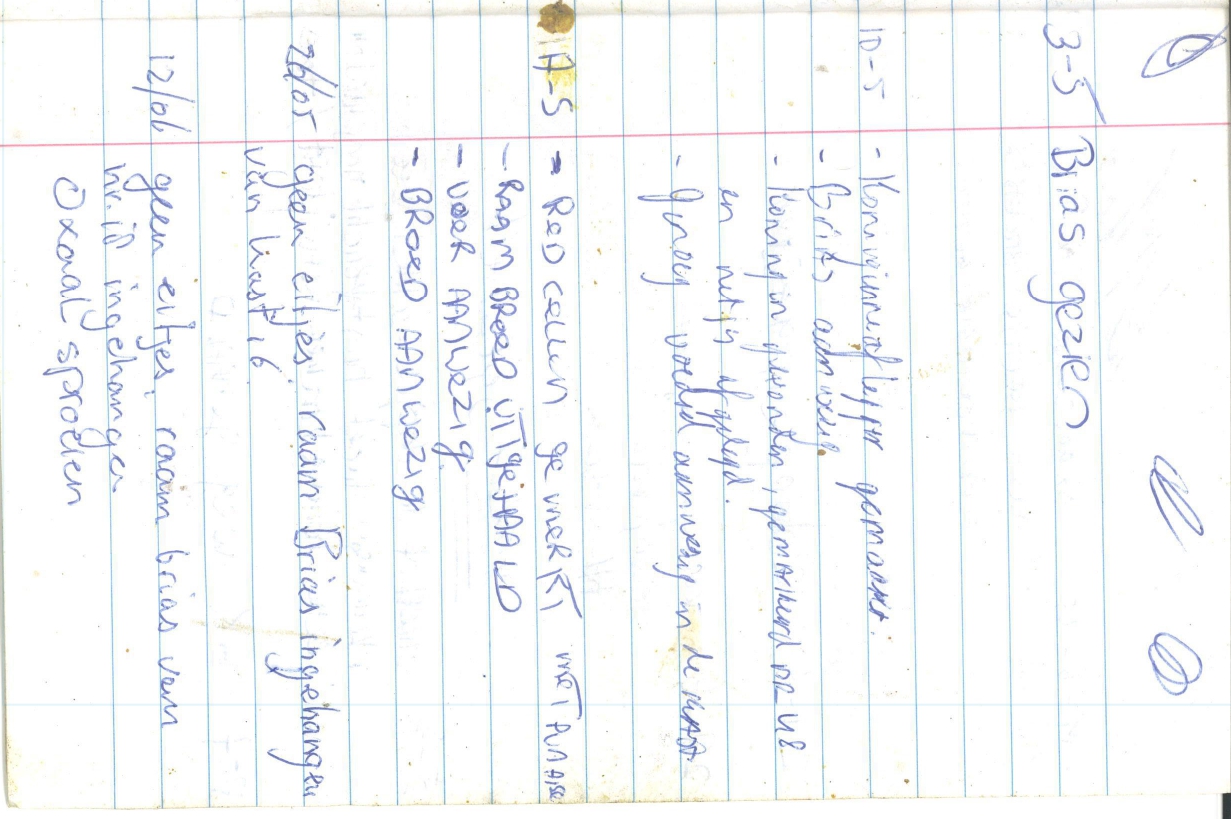 3-5 Brias gezien
10-5 - Koninginneaflegger gemaakt.
- Brias aanwezig
- Koningin gevonden, gemarkeerd nr 48
en netjes afgelegd.
- genoeg voedsel aanwezig in de kast
17-5 - RED cellen gemerkt met punaise
- RAAM BROED UITgeHAALD
- VOER AANWEZIG
- BROED AANWEZIG
26/05 geen eitjes, raam Brias ingehangen
van kast 16
12/06 geen eitjes, raam brias van
ingehangen
Oxaal sproeien